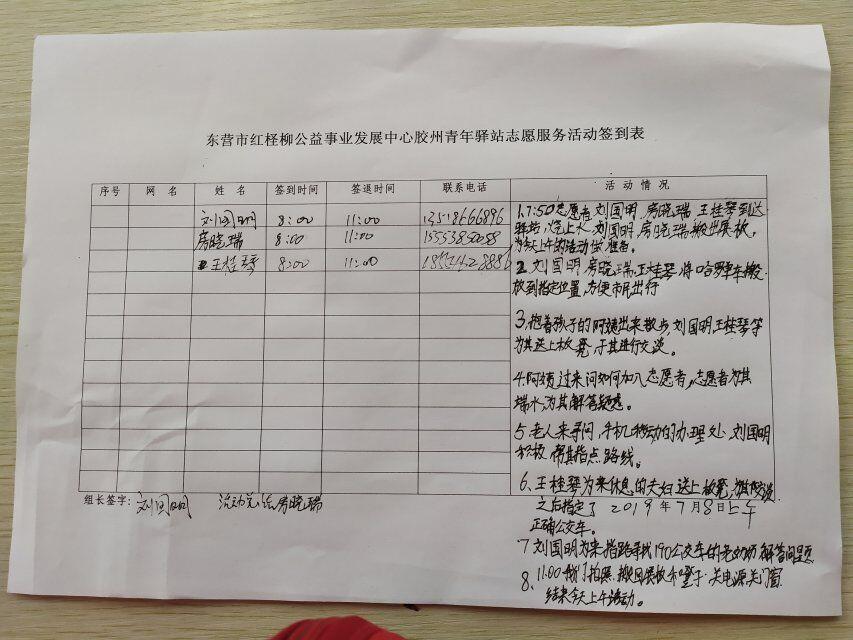 东营市红柽柳公益事业发展中心胶州青年驿站志愿服务活动签到表
序号 网 名 姓 名 签到时间 签退时间 联系电话 活 动 情 况
刘国明 8:00 11:00 13518666896
房晓瑞 8:00 11:00 15553850058
王桂琴 8:00 11:00
1.7:50志愿者刘国明 房晓瑞 王桂琴到达
驿站 上水 刘国明 房晓瑞搬出展板,
为今天上午的活动做准备。
2.刘国明房晓瑞王桂琴将哈罗单车搬
放到指定位置,方便市民出行
3.抱着孩子的阿姨出来散步,刘国明王桂琴等
为其送上板凳 于其进行交谈。
4.阿姨过来问如何加入志愿者,志愿者为其
端水,为其解答疑惑。
5 老人来寻问,手机移动的办理处,刘国明
积极 帮其指点 路线。
6、王桂琴为来休息的夫妇送上板凳,
之后指定了
正确公交车。
2019年7月8日上午
7 刘国明为来指路寻找190公交车的 解答问题
8、11:00 拍照 搬回展板和凳子 关电源关门窗
结束今天上午活动。
组长签字: 刘国明 活动总结房晓瑞